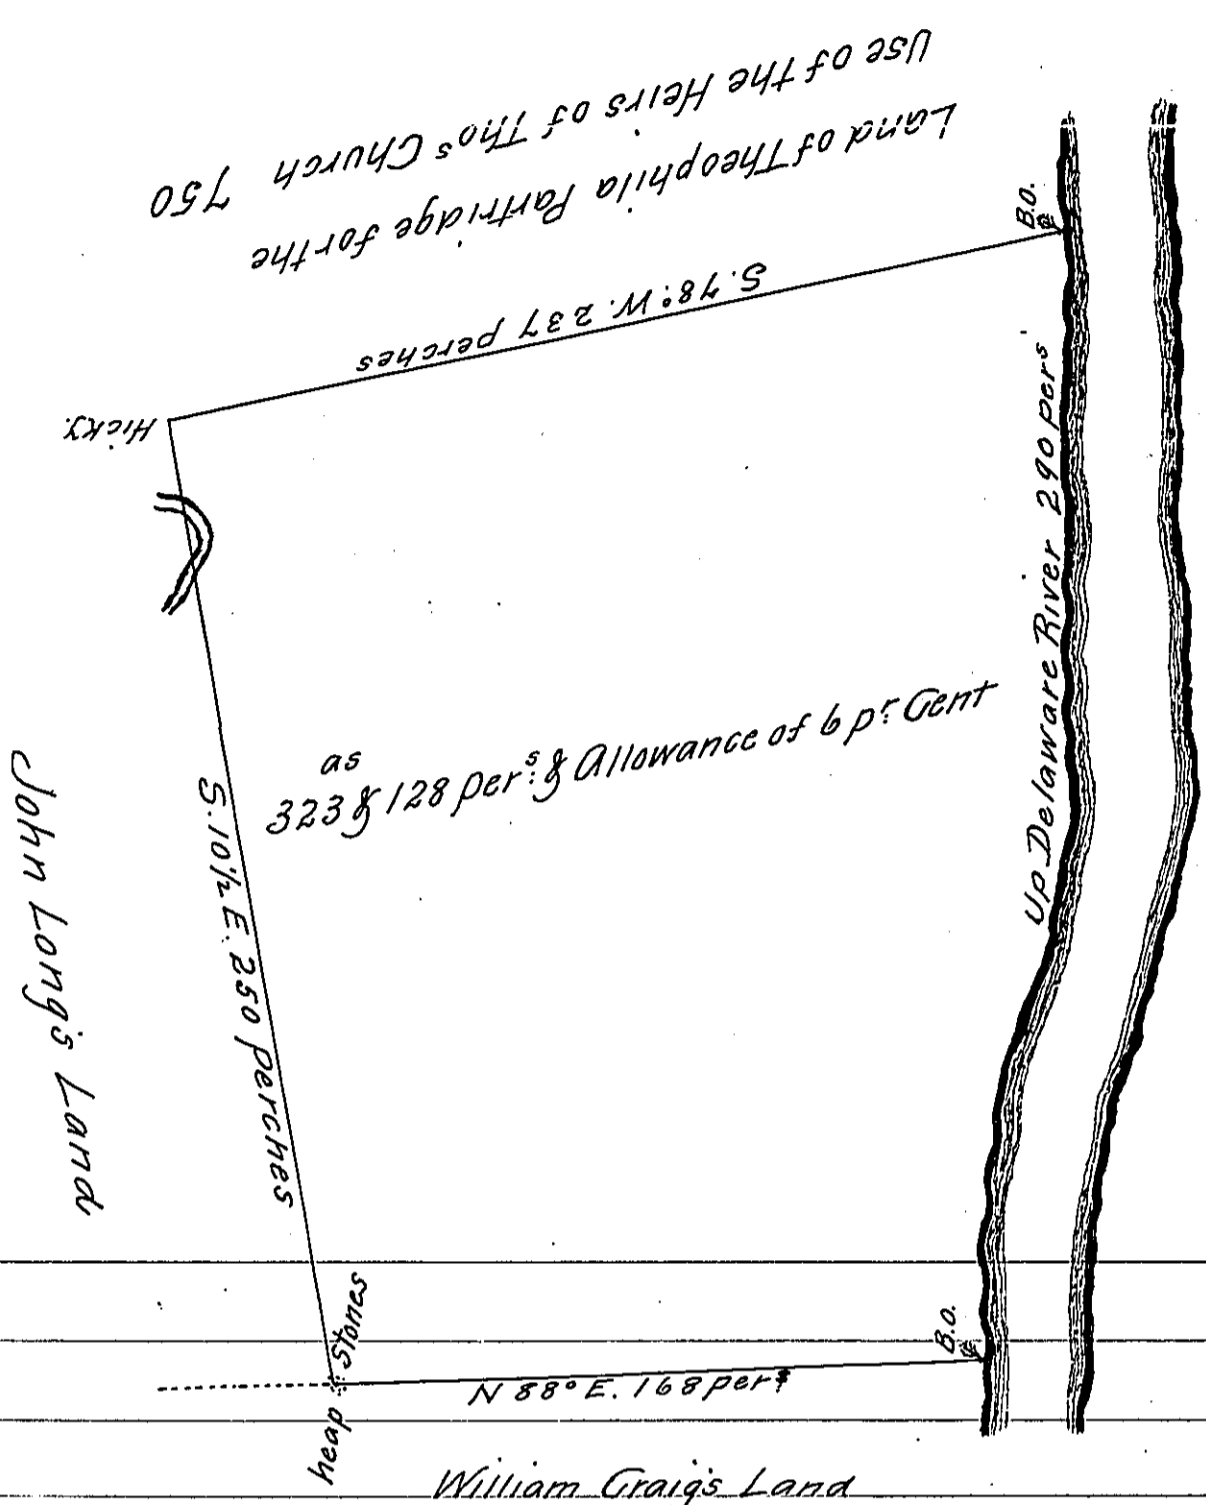 Land of Theophila Partridge for the
Use of the Heirs of Thos Church 750
B.O.
S. 78° W. 237 perches
Hicky.
Up Delaware River 290 pers
as
323 & 128 pers: & Allowance of 6 pr: Cent
S. 10½ E. 250 perches
John Long's Land
heap Stones
B.O.
N 88° E. 168 pers
William Craig's Land